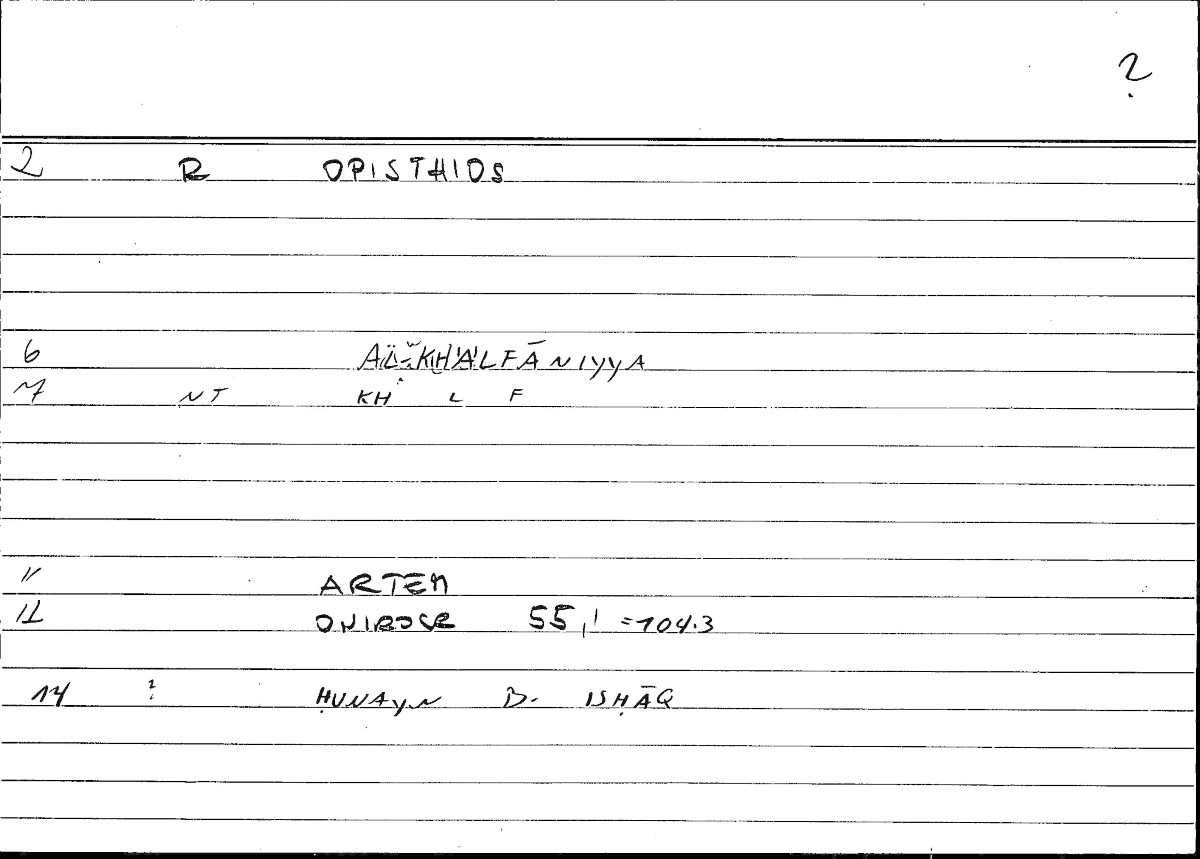 ?
2 R OPISTHIOS
6 AL-KHALFĀNIYYA
7 NT KH L F
11 ARTEM
12 ONIROCR 55,1 =104.3
14 ? ḤUNAYN B. ISḤĀQ